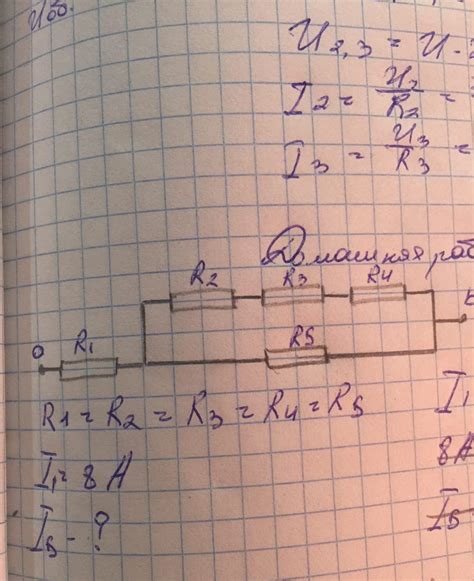 U2,3 = U -
I2 = U2/R2 =
I3 = U3/R3 =
Домашняя раб
R2 R3 R4
R1 R5
R1 = R2 = R3 = R4 = R5
I1 = 8 A
I5 - ?
I1
8A
I5